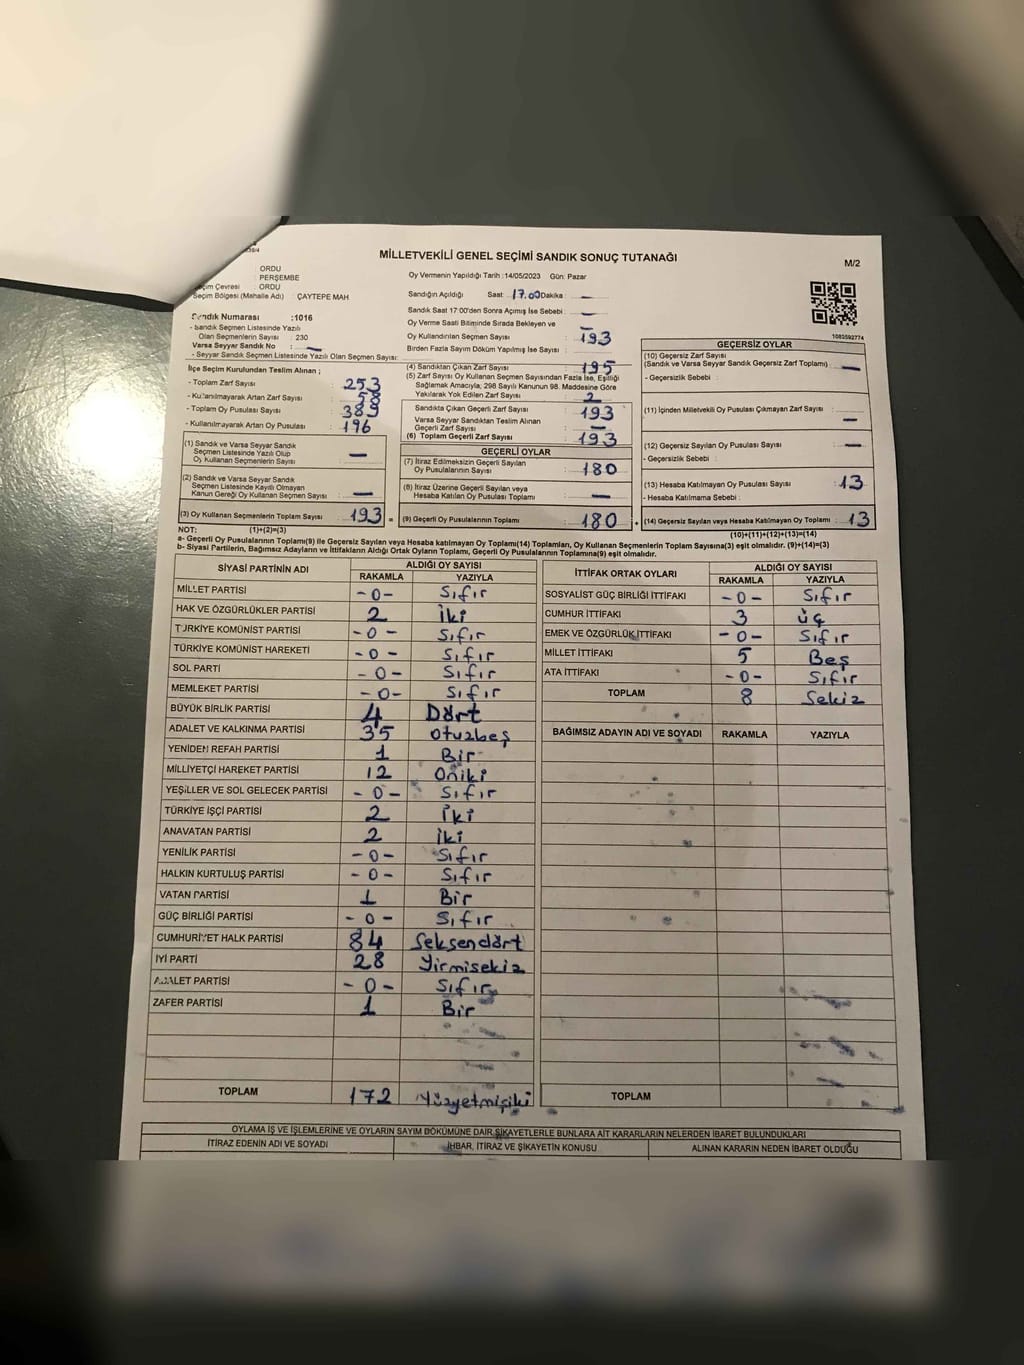 MİLLETVEKİLİ GENEL SEÇİMİ SANDIK SONUÇ TUTANAĞI
M/2
ORDU
PERŞEMBE
eçim Çevresi : ORDU
Seçim Bölgesi (Mahalle Adı) ÇAYTEPE MAH
Oy Vermenin Yapıldığı Tarih : 14/05/2023 Gün: Pazar
Sandığın Açıldığı Saat: 17.00 Dakika : —
Sandık Saat 17:00'den Sonra Açımış İse Sebebi : —
Oy Verme Saati Bitiminde Sırada Bekleyen ve
Oy Kullandırılan Seçmen Sayısı : 193
Birden Fazla Sayım Döküm Yapılmış İse Sayısı : —
1083592774
Sandık Numarası :1016
- Sandık Seçmen Listesinde Yazılı
Olan Seçmenlerin Sayısı : 230
Varsa Seyyar Sandık No : —
- Seyyar Sandık Seçmen Listesinde Yazılı Olan Seçmen Sayısı:
İlçe Seçim Kurulundan Teslim Alınan ;
- Toplam Zarf Sayısı : 253
- Kullanılmayarak Artan Zarf Sayısı : 58
- Toplam Oy Pusulası Sayısı : 389
- Kullanılmayarak Artan Oy Pusulası : 196
(1) Sandık ve Varsa Seyyar Sandık
Seçmen Listesinde Yazılı Olup
Oy Kullanan Seçmenlerin Sayısı : —
(2) Sandık ve Varsa Seyyar Sandık
Seçmen Listesinde Kayıtlı Olmayan
Kanun Gereği Oy Kullanan Seçmen Sayısı : —
(3) Oy Kullanan Seçmenlerin Toplam Sayısı : 193 =
(4) Sandıktan Çıkan Zarf Sayısı : 195
(5) Zarf Sayısı Oy Kullanan Seçmen Sayısından Fazla İse, Eşitliği
Sağlamak Amacıyla, 298 Sayılı Kanunun 98. Maddesine Göre
Yakılarak Yok Edilen Zarf Sayısı : 2
Sandıkta Çıkan Geçerli Zarf Sayısı : 193
Varsa Seyyar Sandıktan Teslim Alınan
Geçerli Zarf Sayısı : —
(6) Toplam Geçerli Zarf Sayısı : 193
GEÇERLİ OYLAR
(7) İtiraz Edilmeksizin Geçerli Sayılan
Oy Pusulalarının Sayısı : 180
(8) İtiraz Üzerine Geçerli Sayılan veya
Hesaba Katılan Oy Pusulası Toplamı : —
(9) Geçerli Oy Pusulalarının Toplamı : 180 +
GEÇERSİZ OYLAR
(10) Geçersiz Zarf Sayısı
(Sandık ve Varsa Seyyar Sandık Geçersiz Zarf Toplamı) : —
- Geçersizlik Sebebi :
(11) İçinden Milletvekili Oy Pusulası Çıkmayan Zarf Sayısı : —
(12) Geçersiz Sayılan Oy Pusulası Sayısı : —
- Geçersizlik Sebebi :
(13) Hesaba Katılmayan Oy Pusulası Sayısı : 13
- Hesaba Katılmama Sebebi :
(14) Geçersiz Sayılan veya Hesaba Katılmayan Oy Toplamı : 13
NOT: (1)+(2)=(3)
(10)+(11)+(12)+(13)=(14)
a- Geçerli Oy Pusulalarının Toplamı(9) ile Geçersiz Sayılan veya Hesaba katılmayan Oy Toplamı(14) Toplamları, Oy Kullanan Seçmenlerin Toplam Sayısına(3) eşit olmalıdır. (9)+(14)=(3)
b- Siyasi Partilerin, Bağımsız Adayların ve İttifakların Aldığı Ortak Oyların Toplamı, Geçerli Oy Pusulalarının Toplamına(9) eşit olmalıdır.
SİYASİ PARTİNİN ADI ALDIĞI OY SAYISI
RAKAMLA YAZIYLA
MİLLET PARTİSİ -0- Sıfır
HAK VE ÖZGÜRLÜKLER PARTİSİ 2 İki
TÜRKİYE KOMÜNİST PARTİSİ -0- Sıfır
TÜRKİYE KOMÜNİST HAREKETİ -0- Sıfır
SOL PARTİ -0- Sıfır
MEMLEKET PARTİSİ -0- Sıfır
BÜYÜK BİRLİK PARTİSİ 4 Dört
ADALET VE KALKINMA PARTİSİ 35 Otuzbeş
YENİDEN REFAH PARTİSİ 1 Bir
MİLLİYETÇİ HAREKET PARTİSİ 12 Oniki
YEŞİLLER VE SOL GELECEK PARTİSİ -0- Sıfır
TÜRKİYE İŞÇİ PARTİSİ 2 İki
ANAVATAN PARTİSİ 2 İki
YENİLİK PARTİSİ -0- Sıfır
HALKIN KURTULUŞ PARTİSİ -0- Sıfır
VATAN PARTİSİ 1 Bir
GÜÇ BİRLİĞİ PARTİSİ -0- Sıfır
CUMHURİYET HALK PARTİSİ 84 Seksendört
İYİ PARTİ 28 Yirmisekiz
ADALET PARTİSİ -0- Sıfır
ZAFER PARTİSİ 1 Bir
TOPLAM 172 Yüzyetmişiki
İTTİFAK ORTAK OYLARI ALDIĞI OY SAYISI
RAKAMLA YAZIYLA
SOSYALİST GÜÇ BİRLİĞİ İTTİFAKI -0- Sıfır
CUMHUR İTTİFAKI 3 üç
EMEK VE ÖZGÜRLÜK İTTİFAKI -0- Sıfır
MİLLET İTTİFAKI 5 Beş
ATA İTTİFAKI -0- Sıfır
TOPLAM 8 Sekiz
BAĞIMSIZ ADAYIN ADI VE SOYADI RAKAMLA YAZIYLA
TOPLAM
OYLAMA İŞ VE İŞLEMLERİNE VE OYLARIN SAYIM DÖKÜMÜNE DAİR ŞİKAYETLERLE BUNLARA AİT KARARLARIN NELERDEN İBARET BULUNDUKLARI
İTİRAZ EDENİN ADI VE SOYADI İHBAR, İTİRAZ VE ŞİKAYETİN KONUSU ALINAN KARARIN NEDEN İBARET OLDUĞU